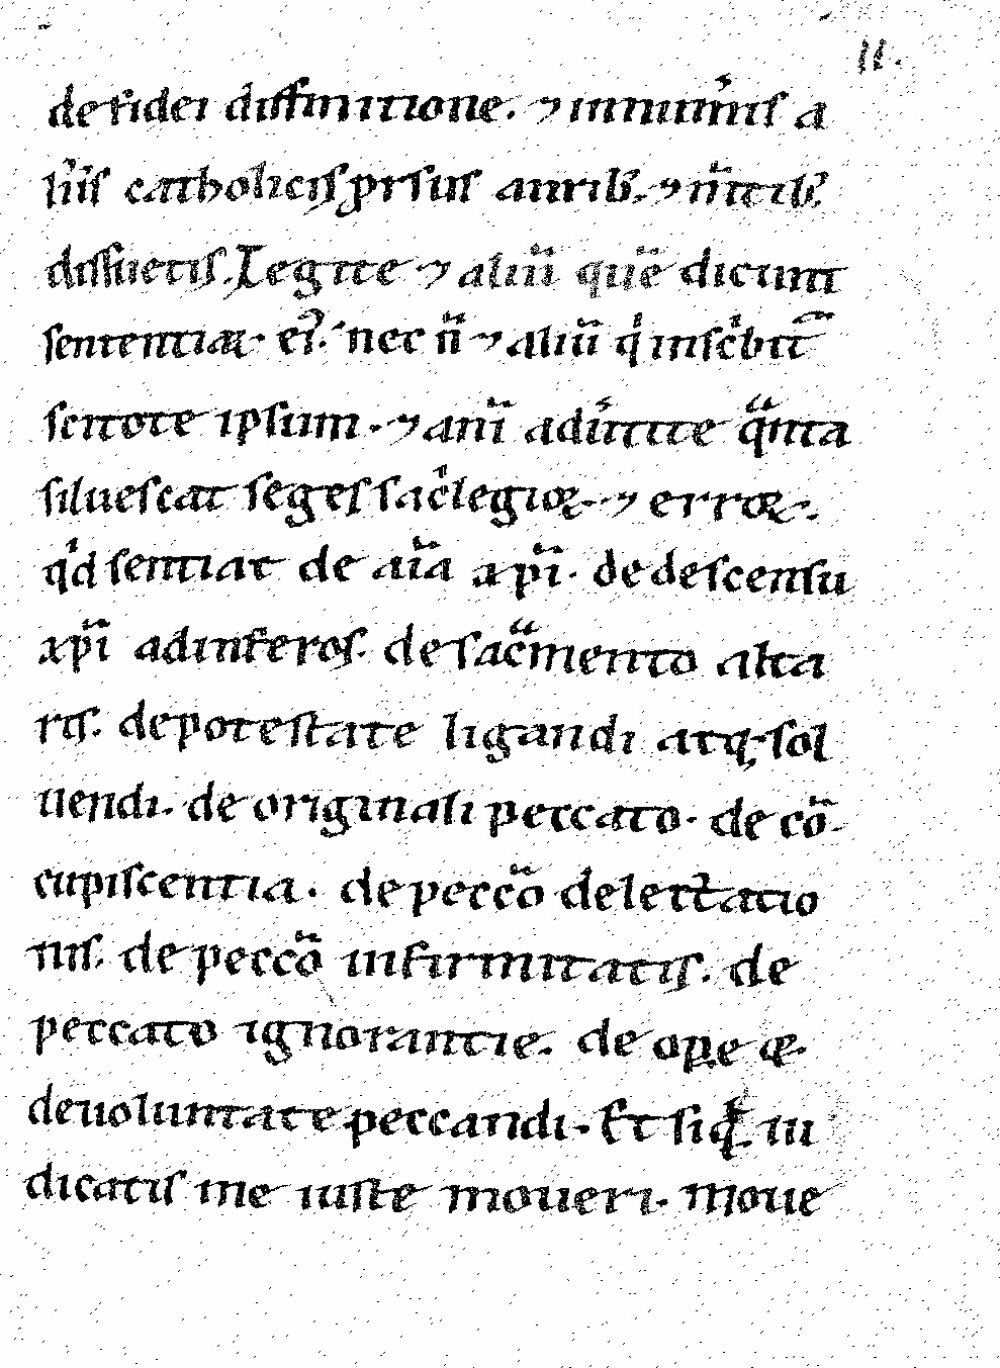 11.
defidei diffinitione. ⁊ inmultis a
liis catholicis prsus aurib; ⁊ m̄tib;
dissuetis. Legite ⁊ aliū quē dicunt
sententiaꝝ ei. nec n̄ ⁊ aliū q inscbit̄
scitote ipsum. ⁊ anī aduītite q̄nta
siluescat seges sac̍legioꝝ. ⁊ erroꝝ.
q̍d sentiat de aīa xp̄i. de descensu
xp̄i adinferos. de sac̄mento alta
ris. de potestate ligandi atq; sol
uendi. de originali peccato. de cō
cupiscentia. de pecc̄o delectatio
nis. de pecc̄o infirmitatis. de
peccato ignorantie. de oꝑe ei.
deuoluntate peccandi. Et si iu
dicatis me iuste moueri. moue